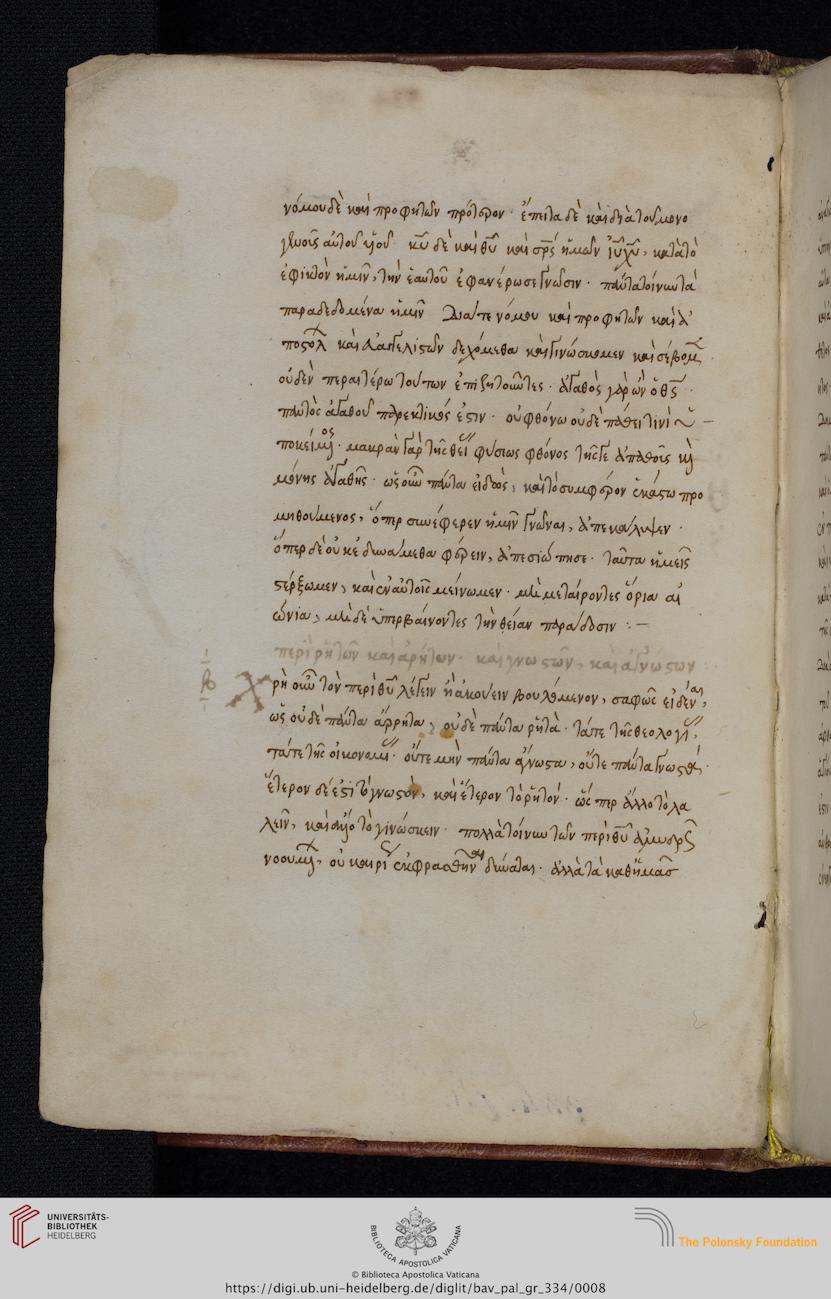 νόμου δὲ καὶ προφητῶν πρότερον· ἔπειτα δὲ καὶ διὰ τοῦ μονο
γενοῦς αὐτοῦ υἱοῦ· κῦ δὲ καὶ θῦ καὶ σρς ἡμῶν ἰῦ χῦ, κατὰ τὸ
ἐφικτὸν ἡμῖν, τὴν ἑαυτοῦ ἐφανέρωσε γνῶσιν· πάντα τοίνυν τὰ
παραδεδομένα ἡμῖν διά τε νόμου καὶ προφητῶν καὶ ἀ
ποστόλ καὶ εὐαγγελιστῶν δεχόμεθα καὶ γινώσκομεν καὶ σέβομ
οὐδὲν περαιτέρω τούτων ἐπιζητοῦντες· ἀγαθὸς γὰρ ὢν ὁ θς·
παντὸς ἀγαθοῦ παρεκτικός ἐστιν· οὐ φθόνω οὐδὲ πάθει τινὶ ὑ
ποκείμενος· μακρὰν γὰρ τῆς θεί φύσεως φθόνος τῆς γε ἀπαθοῦς κ
μόνης ἀγαθῆς· ὡς οὖν πάντα εἰδὼς, καὶ τὸ συμφέρον ἑκάστω προ
μηθούμενος, ὅπερ συνέφερεν ἡμῖν γνῶναι, ἀπεκάλυψεν·
ὅπερ δὲ οὐκ ἐδυνάμεθα φέρειν, ἀπεσιώπησε· ταῦτα ἡμεῖς
στέρξωμεν, καὶ ἐν αὐτοῖς μείνωμεν· μὴ μεταίροντες ὅρια αἰ
ώνια, μὴ δὲ ὑπερβαίνοντες τὴν θείαν παράδοσιν :–
περὶ ῥητῶν καὶ ἀρήτων· καὶ γνωστῶν, καὶ ἀγνώστων :
β Χρὴ οὖν τὸν περὶ θῦ λέγειν ἢ ἀκούειν βουλόμενον, σαφῶς εἰδέναι,
ὡς οὐδὲ πάντα ἄρρητα, οὐδὲ πάντα ῥητὰ· τά τε τῆς θεολογί,
τά τε τῆς οἰκονομί· οὔτε μὴν πάντα ἄγνωστα, οὔτε πάντα γνωστά·
ἕτερον δέ ἐστι τὸ γνωστὸν, καὶ ἕτερον τὸ ῥητόν· ὥσπερ ἄλλο τὸ λα
λεῖν, καὶ ἄλλο τὸ γινώσκειν· πολλὰ τοίνυν τῶν περὶ θῦ ἀμυδρῶς
νοουμ, οὐ καιρί ἐκφρασθῆναι δύναται· ἀλλὰ τὰ καθ ἡμᾶς
UNIVERSITÄTS-
BIBLIOTHEK
HEIDELBERG
BIBLIOTECA APOSTOLICA VATICANA
The Polonsky Foundation
© Biblioteca Apostolica Vaticana
https://digi.ub.uni-heidelberg.de/diglit/bav_pal_gr_334/0008